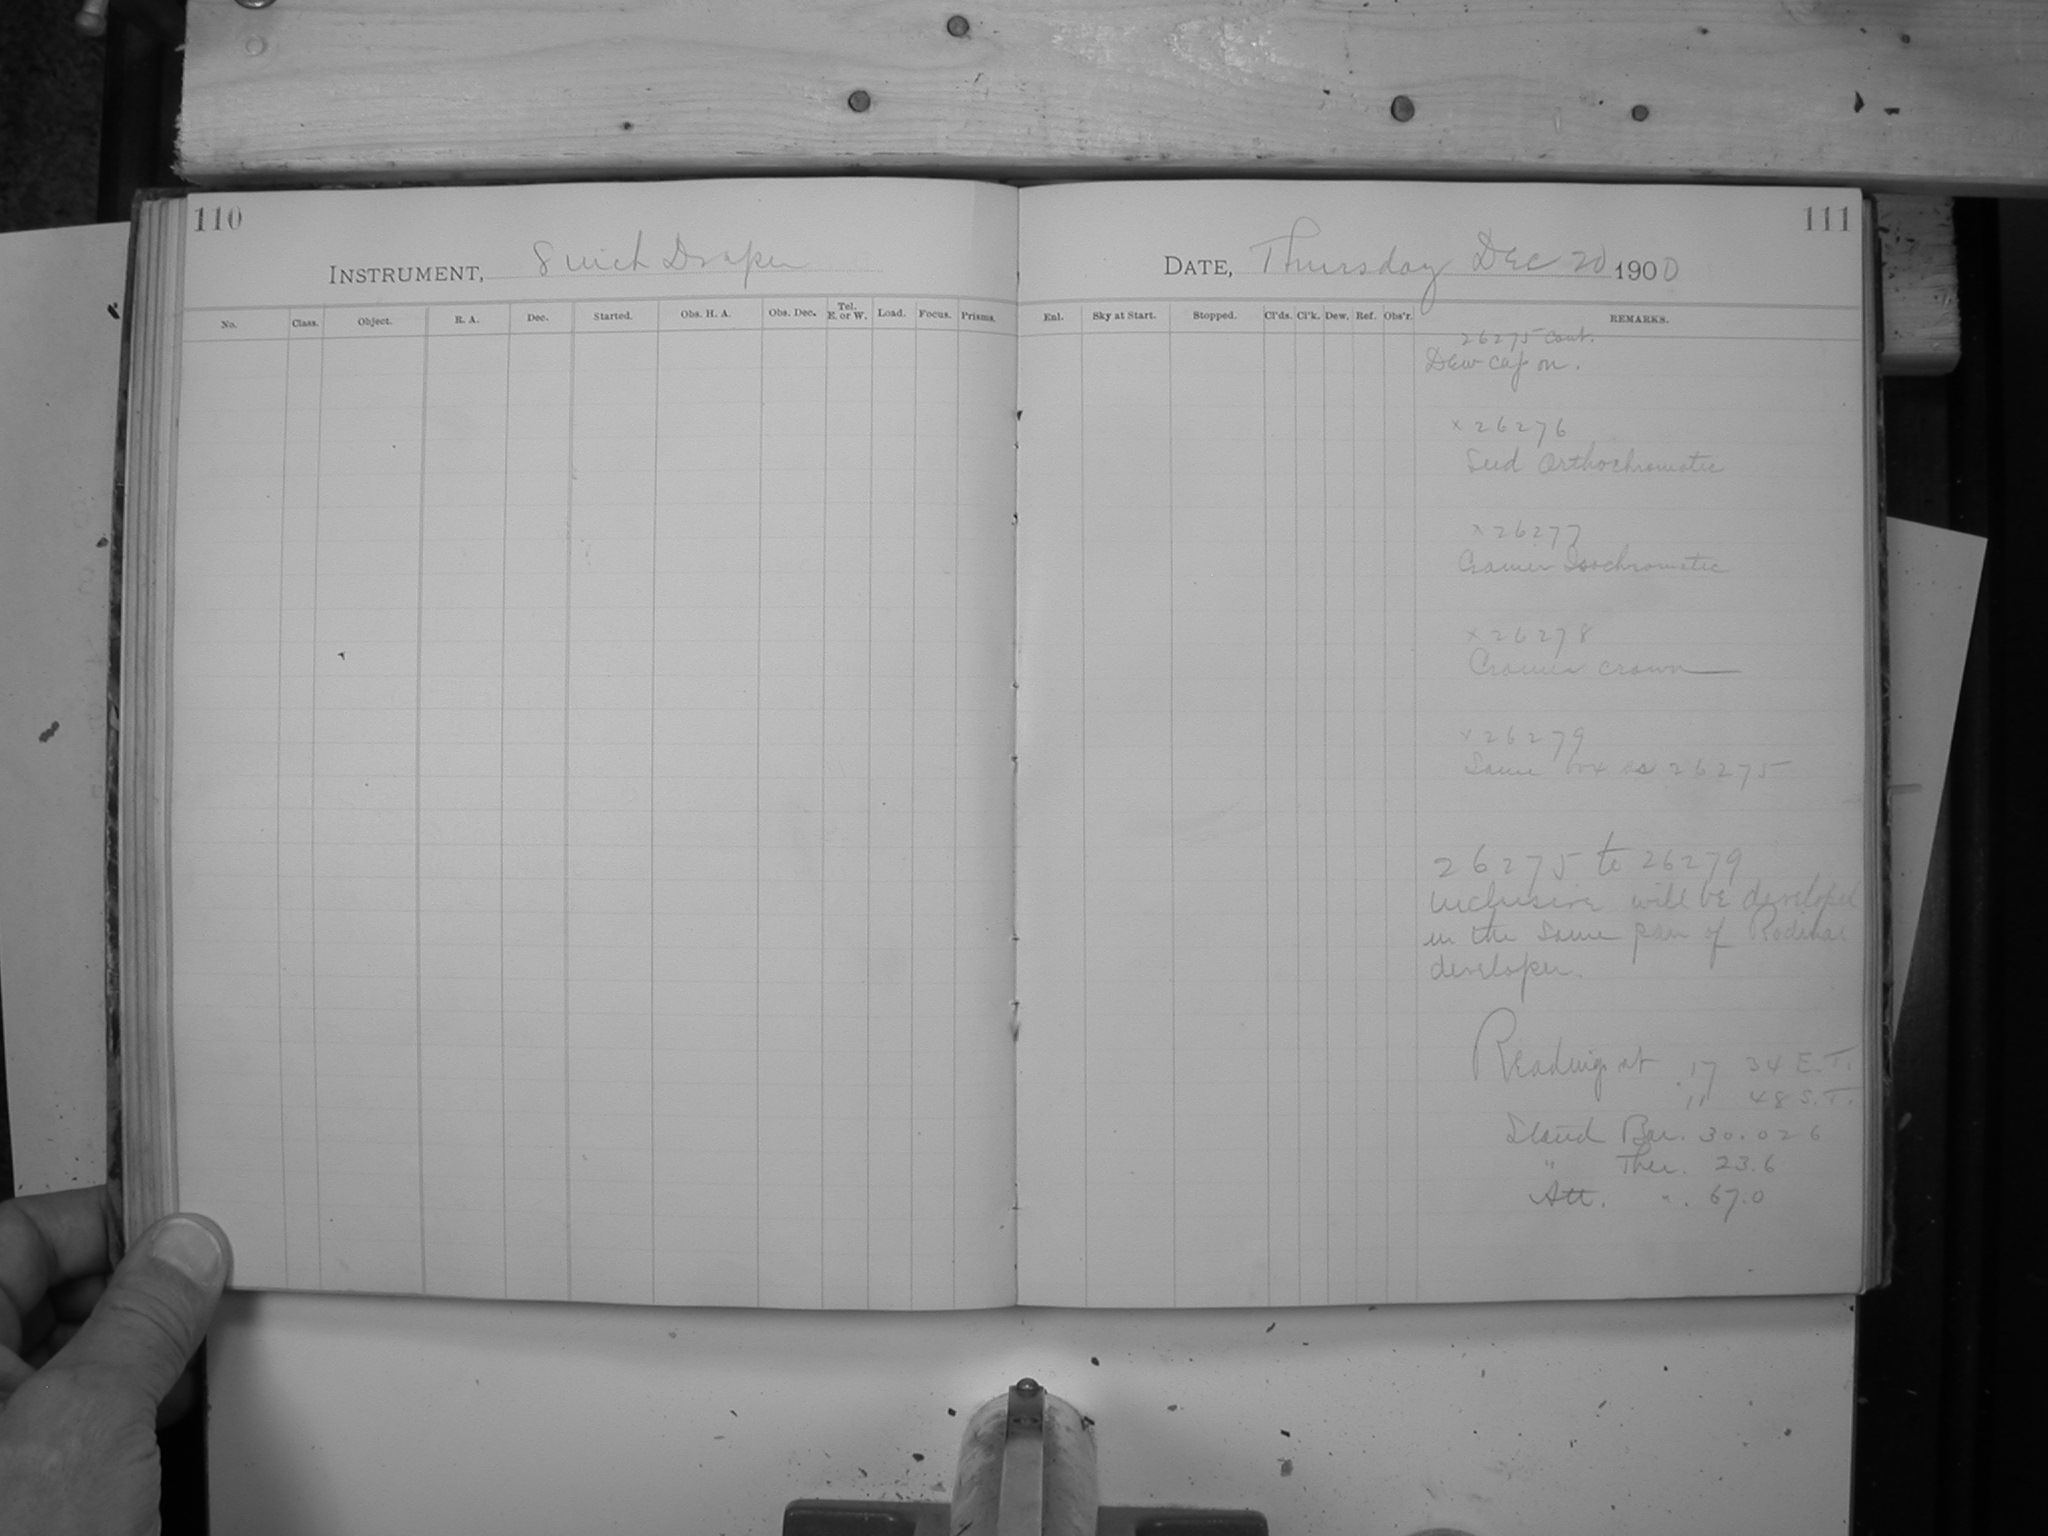 110
INSTRUMENT, 8 inch Draper
No. Class. Object. R. A. Dec. Started. Obs. H. A. Obs. Dec. Tel. E. or W. Load. Focus. Prisms.
111
DATE, Thursday Dec 20 1900
Enl. Sky at Start. Stopped. Cl'ds. Cl'k. Dew. Ref. Obs'r. REMARKS.
26275 Cont.
Dew cap on.
x 26276
Seed Orthochromatic
x 26277
Cramer Isochromatic
x 26278
Cramer crown
x 26279
Same box as 26275
26275 to 26279
inclusive will be developed
in the same pan of Rodinal
developer.
Readings at 17 34 E.T.
11 48 S.T.
Stand Bar. 30.026
" Ther. 23.6
Att. ". 67.0